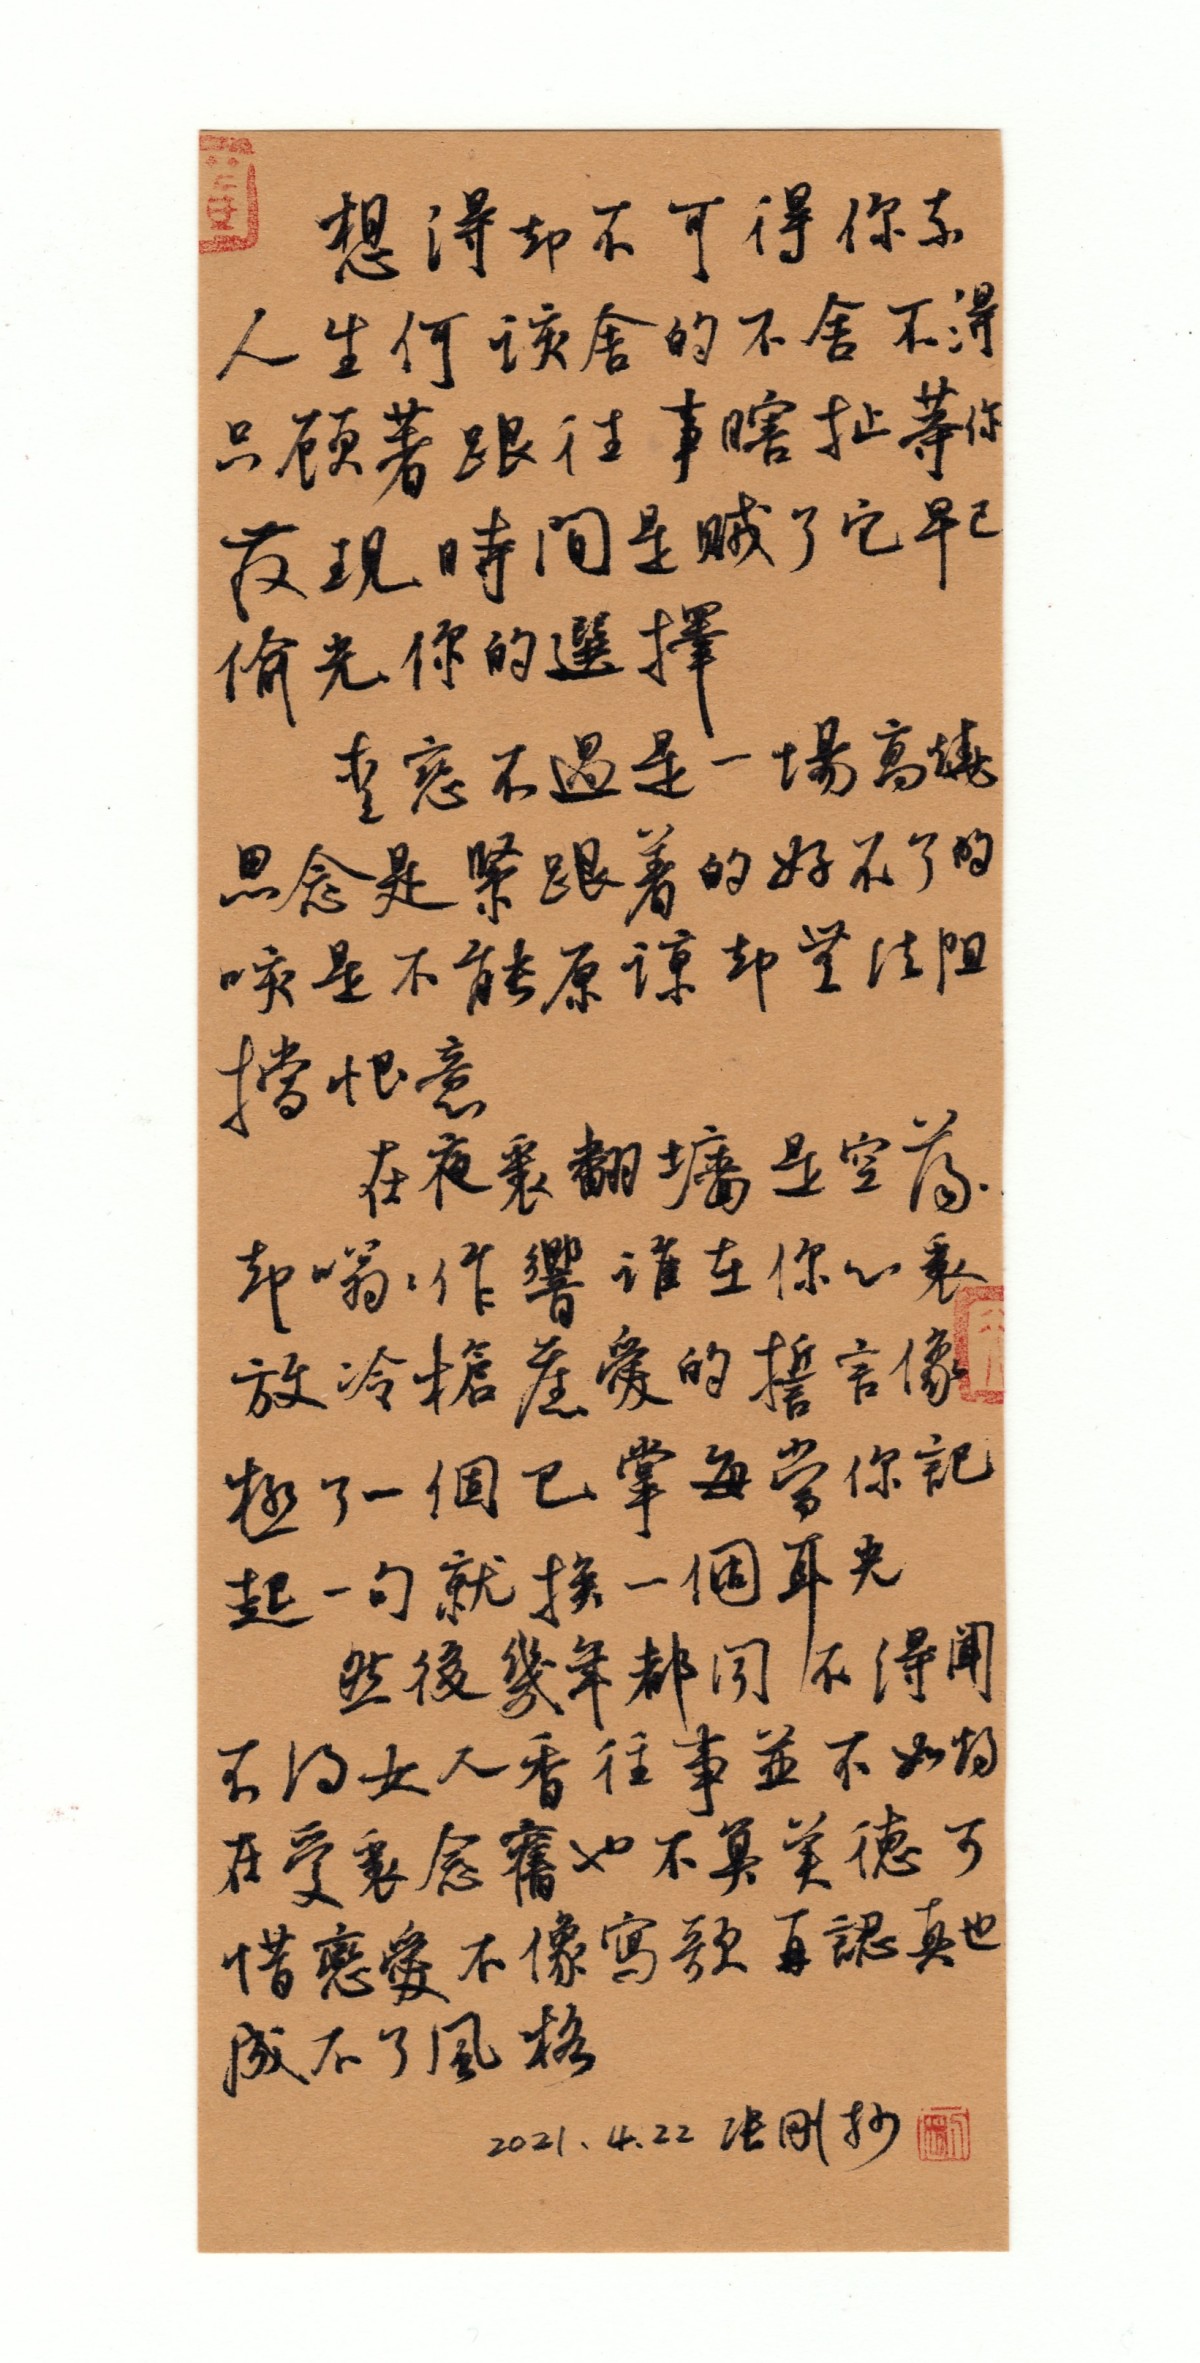 想得却不可得你奈
人生何該舍的不舍不得
只顧著跟往事瞎扯等你
發現時間是賊了它早已
偷光你的選擇
愛戀不過是一場高燒
思念是緊跟著的好不了的
咳是不能原諒却無法阻
擋恨意
在夜裏翻墻是空蕩
却嗡嗡作響誰在你心裏
放冷槍舊愛的誓言像
極了一個巴掌每當你記
起一句就挨一個耳光
然後幾年都聞不得聞
不得女人香往事並不如煙
在愛裏念舊也不算美德可
惜戀愛不像寫歌再認真也
成不了風格
2021.4.22 张刚抄